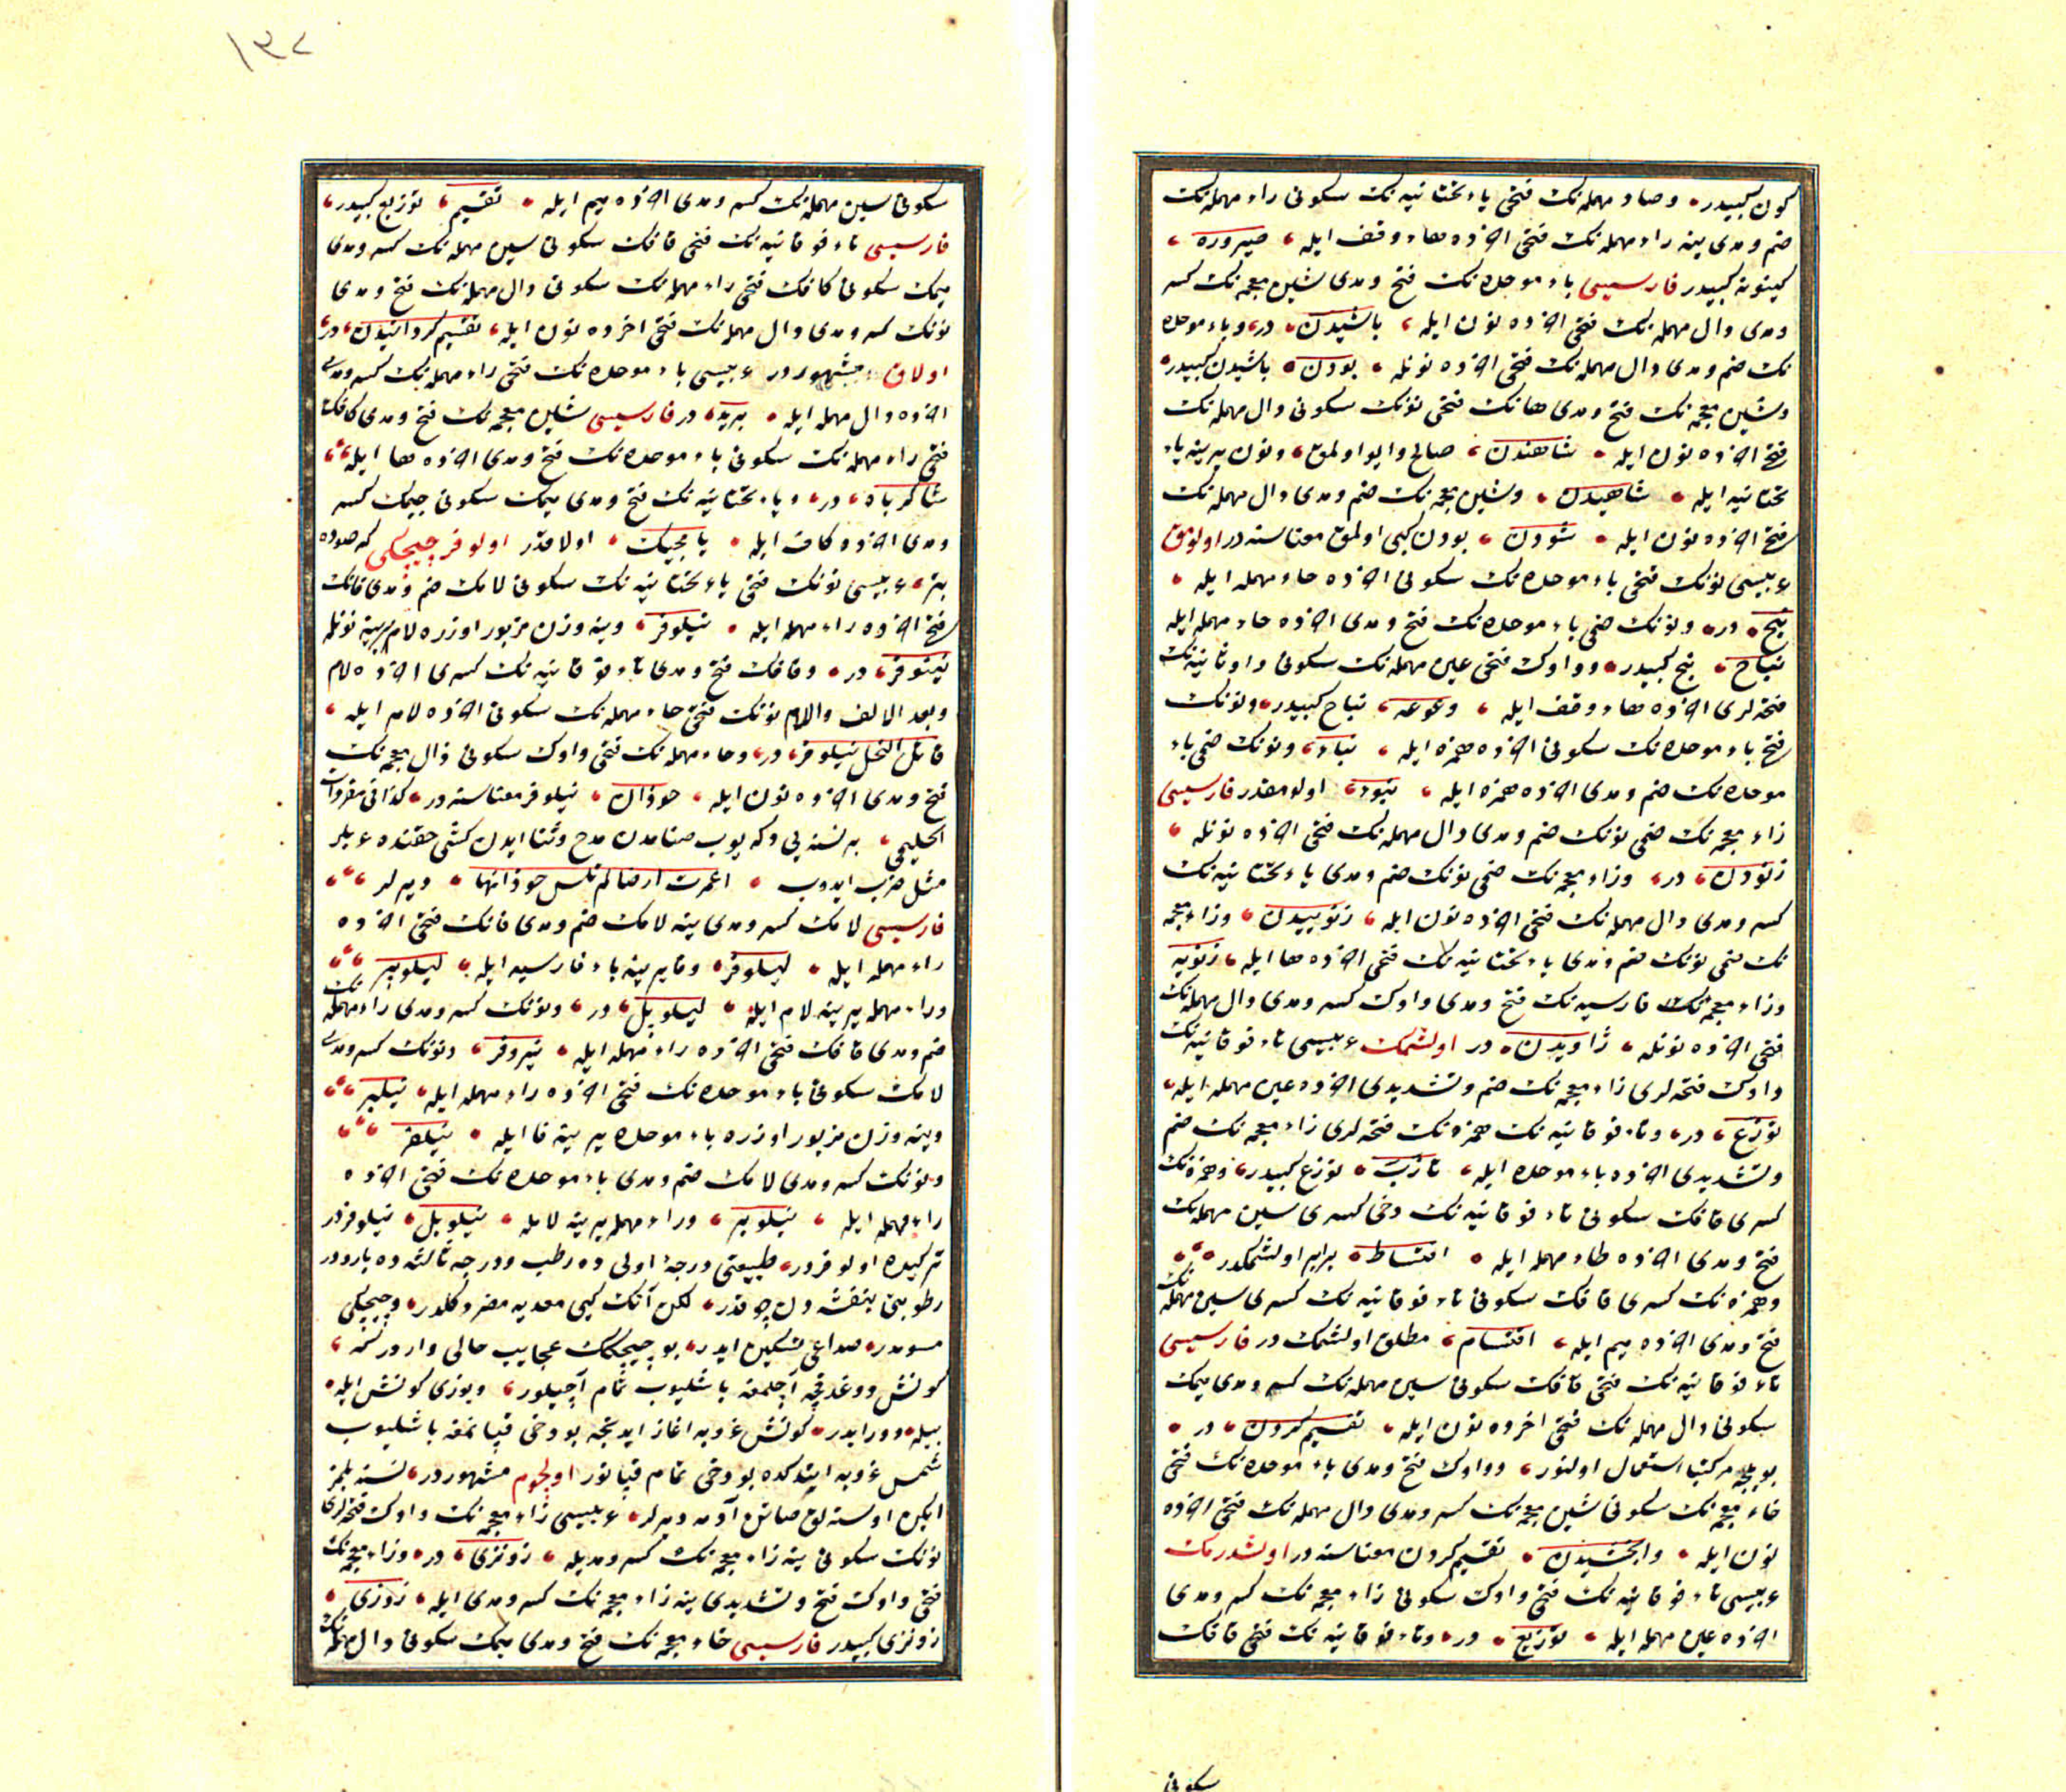 كون كبيدر وصاد مهمله نك فتحى ياء تحتانيه نك سكونى راء مهمله نك
ضم ومدى ينه راء مهمله نك فتحى اخرده هاء وقف ايله صيروره
كينونه كبيدر فارسيسى باء موحده نك فتح ومدى شين معجمه نك كسر
ومدى دال مهمله نك فتحى اخرده نون ايله باشيدن در وباء موحده
نك ضم ومدى دال مهمله نك فتحى اخرده نونله بودن باشيدن كبيدر
وشين معجمه نك فتح ومدى هانك فتحى نونك سكونى دال مهمله نك
فتح اخرده نون ايله شاهندن صالح وايو اولمق ونون يرينه ياء
تحتانيه ايله شاهيدن وشين معجمه نك ضم ومدى دال مهمله نك
فتح اخرده نون ايله شودن بودن كبى اولمق معناسنه در اولومق
عربيسى نونك فتحى باء موحده نك سكونى اخرده حاء مهمله ايله
نبح در ونونك ضمى باء موحده نك فتح ومدى اخرده حاء مهمله ايله
نباح نبح كبيدر وواوك فتحى عين مهمله نك سكونى واو ثانيه نك
فتحه لرى اخرده هاء وقف ايله وعوعه نباح كبيدر ونونك
فتح باء موحده نك سكونى اخرده همزه ايله نباء ونونك ضمى باء
موحده نك ضم ومدى اخرده همزه ايله نبوء اولومقدر فارسيسى
زاء معجمه نك ضمى نونك ضم ومدى دال مهمله نك فتحى اخرده نونله
زنودن در وزاء معجمه نك ضمى نونك ضم ومدى ياء تحتانيه نك
كسر ومدى دال مهمله نك فتحى اخرده نون ايله زنوييدن وزاء معجمه
نك ضمى نونك ضم ومدى ياء تحتانيه نك فتحى اخرده ها ايله زنويه
وزاء معجمه نك فارسيه نك فتح ومدى واوك كسر ومدى دال مهمله نك
فتحى اخرده نونله ژاويدن در اولشمك عربيسى تاء فوقانيه نك
واوك فتحه لرى زاء معجمه نك ضم وتشديدى اخرده عين مهمله ايله
توزع در وتاء فوقانيه نك همزه نك فتحه لرى زاء معجمه نك ضم
وتشديدى اخرده باء موحده ايله تأزب توزع كبيدر وهمزه نك
كسرى قافك سكونى تاء فوقانيه نك دخى كسرى سين مهمله نك
فتح ومدى اخرده طاء مهمله ايله اقتساط برابر اولشمكدر
وهمزه نك كسرى قافك سكونى تاء فوقانيه نك كسرى سين مهمله نك
فتح ومدى اخرده ميم ايله اقتسام مطلق اولشمك در فارسيسى
تاء فوقانيه نك فتحى قافك سكونى سين مهمله نك كسر ومدى ميمك
سكونى دال مهمله نك فتحى اخرده نون ايله تقسيم كردن در
بويله مركبا استعمال اولنور وواوك فتح ومدى باء موحده نك فتحى
خاء معجمه نك سكونى شين معجمه نك كسر ومدى دال مهمله نك فتحى اخرده
نون ايله وابخشيدن تقسيم كردن معناسنه در اولشدرمك
عربيسى تاء فوقانيه نك فتحى واوك سكونى زاء معجمه نك كسر ومدى
اخرده عين مهمله ايله توزيع در وتاء فوقانيه نك فتحى قافك
سكونى
١٣٢
سكونى سين مهمله نك كسر ومدى اخرده ميم ايله تقسيم توزيع كبيدر
فارسيسى تاء فوقانيه نك فتحى قافك سكونى سين مهمله نك كسر ومدى
ميمك سكونى كافك فتحى راء مهمله نك سكونى دال مهمله نك فتح ومدى
نونك كسر ومدى دال مهمله نك فتحى اخرده نون ايله تقسيم كردانيدن در
اولاق مشهوردر عربيسى باء موحده نك فتحى راء مهمله نك كسر ومدى
اخرده دال مهمله ايله بريد در فارسيسى شين معجمه نك فتح ومدى كافك
فتحى راء مهمله نك سكونى باء موحده نك فتح ومدى اخرده ها ايله
شاكرباه در وياء تحتانيه نك فتح ومدى ميمك سكونى جيمك كسر
ومدى اخرده كاف ايله يامجيك اولاقدر اولوفر چيچكى كه صوده
بتر عربيسى نونك فتحى ياء تحتانيه نك سكونى لامك ضم ومدى فانك
فتح اخرده راء مهمله ايله نيلوفر وينه وزن مزبور اوزره لام يرينه نونله
نينوفر در وقافك فتح ومدى تاء فوقانيه نك كسرى اخرده لام
وبعد الالف واللام نونك فتحى حاء مهمله نك سكونى اخرده لام ايله
قاتل النحل نيلوفر در وحاء مهمله نك فتحى واوك سكونى ذال معجمه نك
فتح ومدى اخرده نون ايله حوذان نيلوفر معناسنه در كذا فى مفردات
الحليمى بر نسنه يى دكه يوب صنامدن مدح وثنا ايدن كشى حقنده عربلر
مثل ضرب ايدوب اعمرت ارضا لم تلس حوذانها ديرلر
فارسيسى لامك كسر ومدى ينه لامك ضم ومدى فانك فتحى اخرده
راء مهمله ايله ليلوفر وفا يرينه باء فارسيه ايله ليلوپر
وراء مهمله يرينه لام ايله ليلوپل در ونونك كسر ومدى راء مهمله نك
ضم ومدى فافك فتحى اخرده راء مهمله ايله نيروفر ونونك كسر ومدى
لامك سكونى باء موحده نك فتحى اخرده راء مهمله ايله نيلبر
وينه وزن مزبور اوزره باء موحده يرينه فا ايله نيلفر
ونونك كسر ومدى لامك ضم ومدى باء موحده نك فتحى اخرده
راء مهمله ايله نيلوبر وراء مهمله يرينه لامله نيلوبل نيلوفردر
تركيده اولوفردر طبيعتى درجۀ اولى ده رطب ودرجه ثالثه ده بارددر
رطوبتى بنفشه دن چوقدر لكن آنك كبى معديه مضر دكلدر وچيچكى
مسومدر صداعى تسكين ايدر بو چيچكك عجايب حالى واردركه
كونش دوغدقچه آچلمغه باشليوب تمام آچيلور ويوزى كونش ايله
بيله دور ايدر كونش غروبه اغاز ايدنجه بو دخى قپانمغه باشليوب
شمس غروب ايتدكده بو دخى تمام قپانور اولجوم مشهوردر نسنه بلمز
ايكن اوستهلق صاتن آدمه ديرلر عربيسى زاء معجمه نك واوك فتحه لرى
نونك سكونى ينه زاء معجمه نك كسر ومديله زونزى در وزاء معجمه نك
فتحى واوك فتح وتشديدى ينه زاء معجمه نك كسر ومدى ايله زوزى
زونزى كبيدر فارسيسى خاء معجمه نك فتح ومدى ميمك سكونى دال مهمله نك